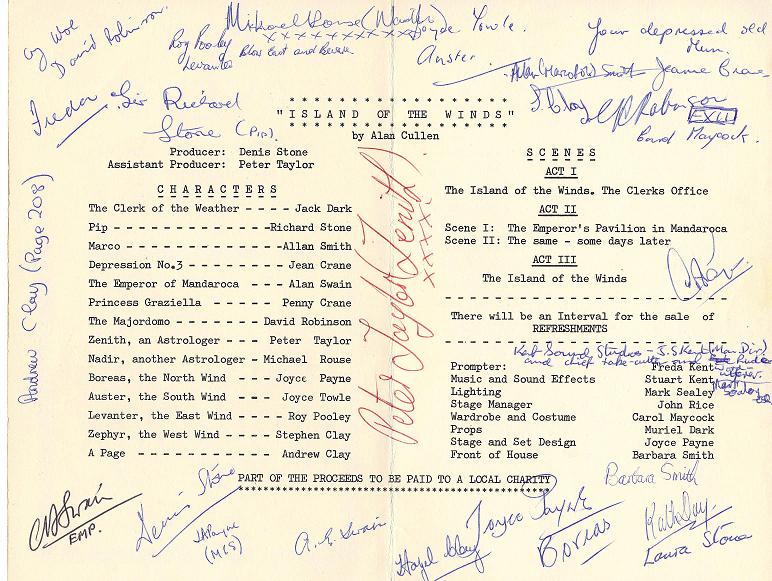 Michael Rouse (Nadir)
Joyce Towle.
Auster
Your depressed old
Mum.
Jeanne Crane
David Robinson.
Roy Pooley
Levanter
Allan (Marco) Smith
Freda
Sir Richard
Stone (Pip)
S. Clay
Carol Maycock.
"ISLAND OF THE WINDS"
by Alan Cullen
Producer: Denis Stone
Assistant Producer: Peter Taylor
CHARACTERS
The Clerk of the Weather - - - - Jack Dark
Pip - - - - - - - - - - - - - -Richard Stone
Marco - - - - - - - - - - - - -Allan Smith
Depression No.3 - - - - - - - Jean Crane
The Emperor of Mandaroca - - - Alan Swain
Princess Graziella - - - - - Penny Crane
The Majordomo - - - - - - David Robinson
Zenith, an Astrologer - - - Peter Taylor
Nadir, another Astrologer - Michael Rouse
Boreas, the North Wind - - - Joyce Payne
Auster, the South Wind - - - Joyce Towle
Levanter, the East Wind - - - Roy Pooley
Zephyr, the West Wind - - - Stephen Clay
A Page - - - - - - - - - - Andrew Clay
Andrew Clay (Page 208)
Peter Taylor (Zenith)
xxxx
SCENES
ACT I
The Island of the Winds. The Clerks Office
ACT II
Scene I: The Emperor's Pavilion in Mandaroca
Scene II: The same - some days later
ACT III
The Island of the Winds
There will be an Interval for the sale of
REFRESHMENTS
Kent Sound Studios - S. S Kent (Man. Dir.)
Prompter: Freda Kent
Music and Sound Effects Stuart Kent
Lighting Mark Sealey
Stage Manager John Rice
Wardrobe and Costume Carol Maycock
Props Muriel Dark
Stage and Set Design Joyce Payne
Front of House Barbara Smith
PART OF THE PROCEEDS TO BE PAID TO A LOCAL CHARITY
Barbara Smith
Swain
EMP.
Denis Stone
A. E. Swain
Hazel Clay
Joyce Payne
Boreas
Laura Stone